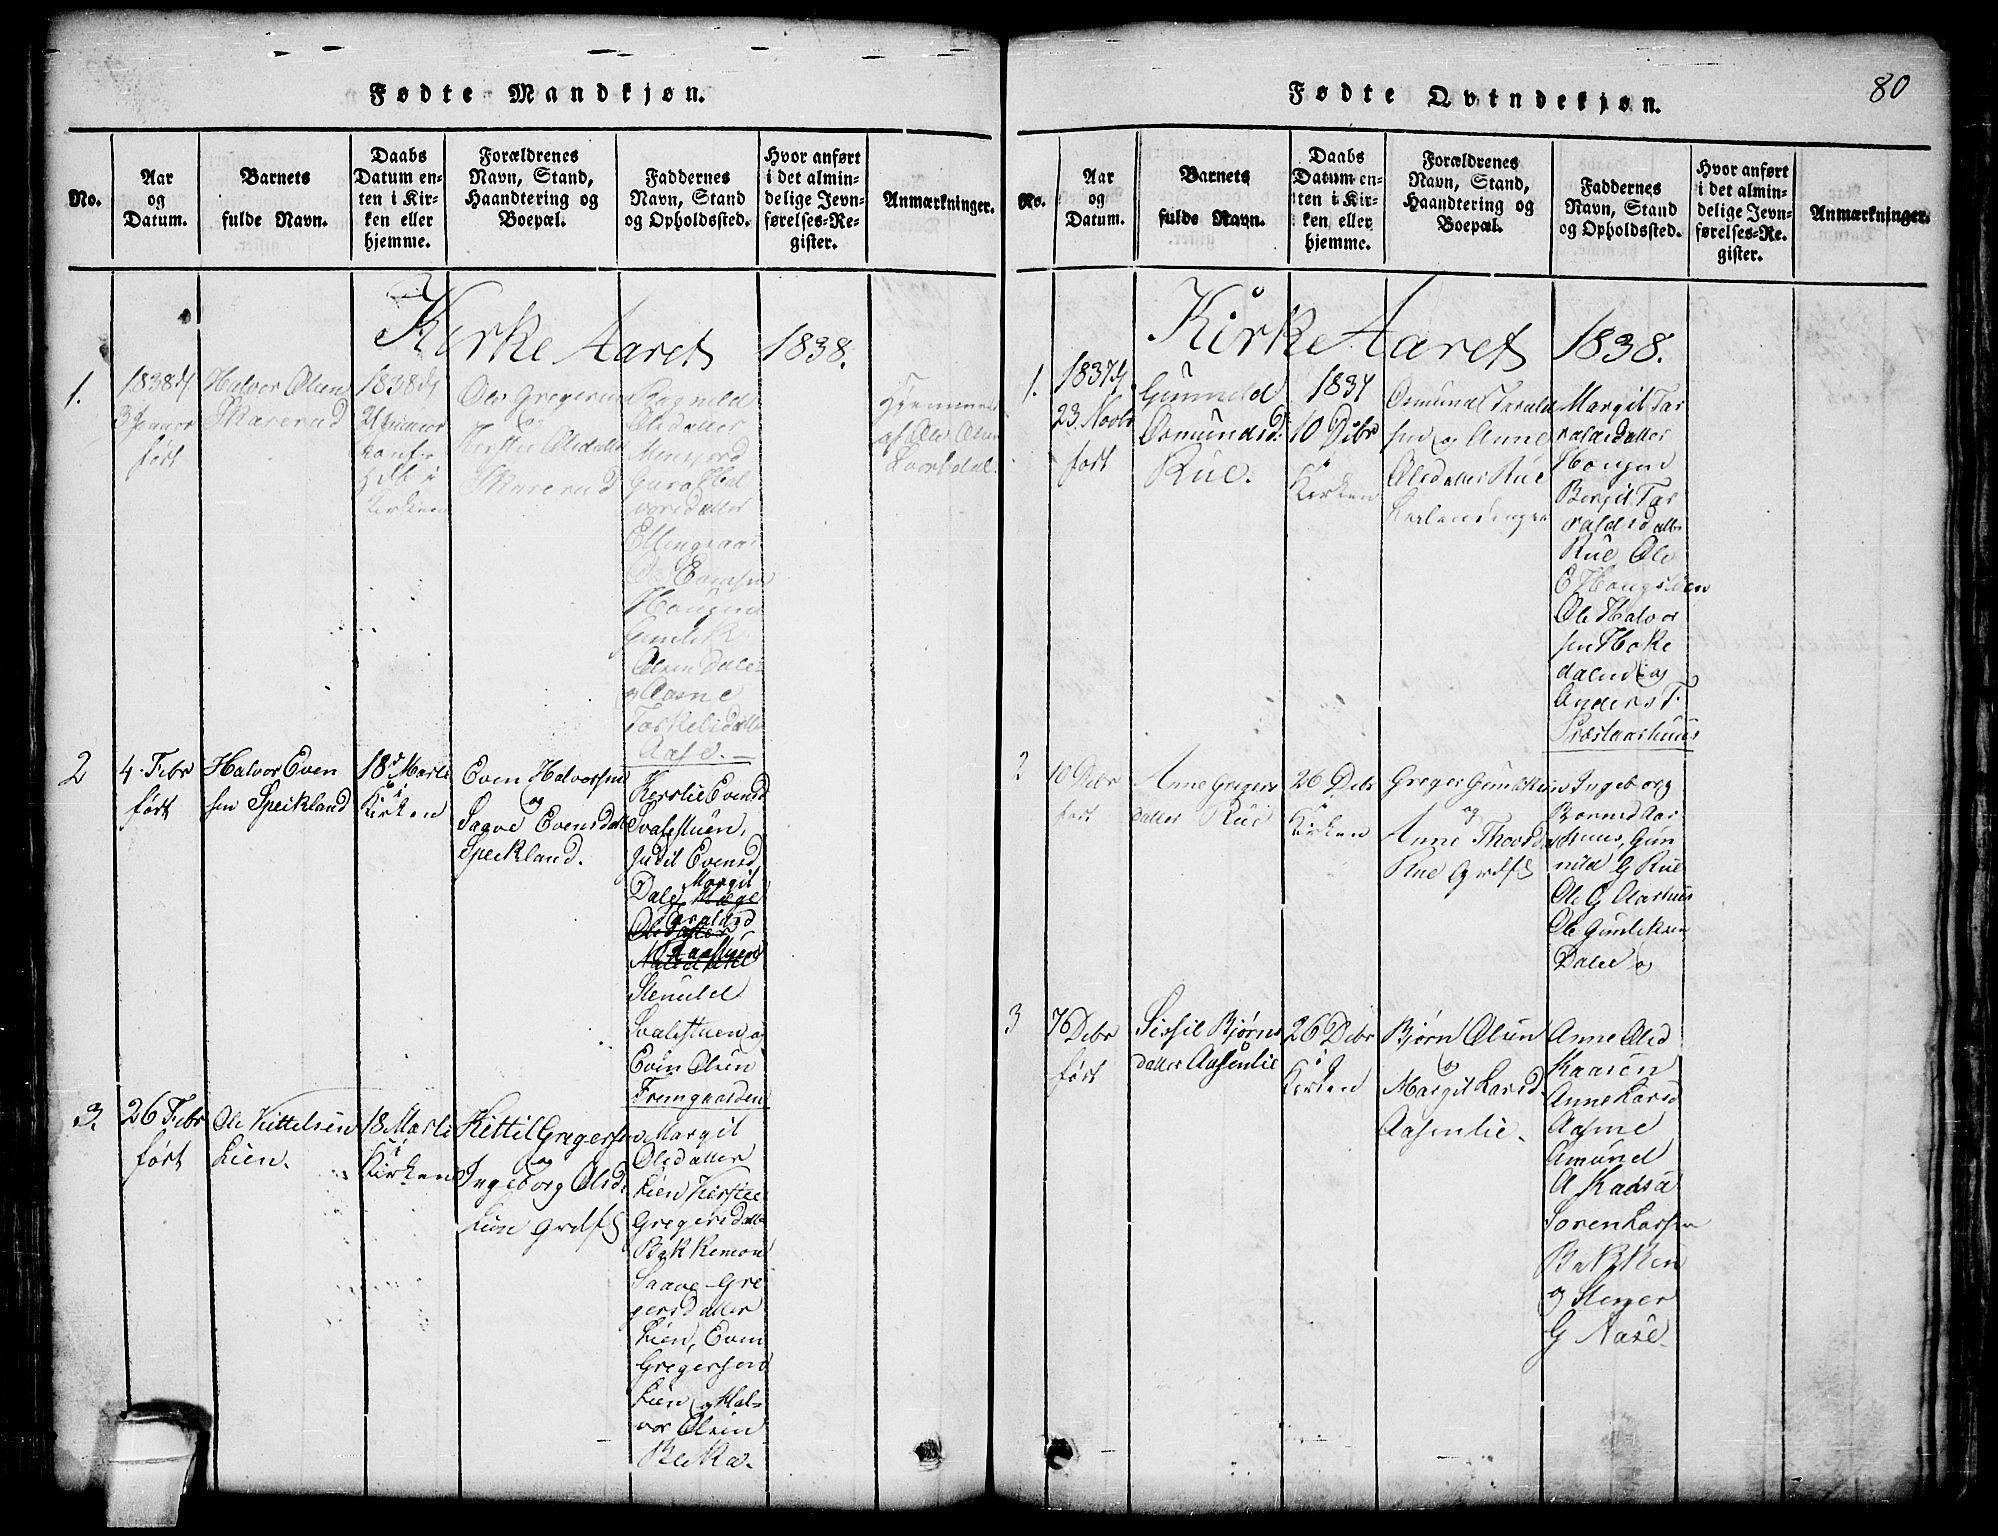 Fødte Mandkjøn.
No.
Aar
og
Datum.
Barnets
fulde Navn.
Daabs
Datum en-
ten i Kir-
ken eller
hjemme.
Forældrenes
Navn, Stand,
Haandtering og
Boepæl.
Faddernes
Navn, Stand
og Opholdssted.
Hvor anført
i det almin-
delige Jevn-
førelses-Re-
gister.
Anmærkninger.
Kirke Aaret 1838.
1.
1838 d
3 Januor
ført
Halvor Olsen
Skarerud
1838 d
i
Kirken
Ole Gregersen
og
Kirstie Olsdatter
Skarerud
Ragnild
Olsdatter
Guro Hal
vorsdatter
Ellingsaar
Ole Evensen
Haugen
Gunlik
Olsen Dale
og Aasne
Torkelsdatter
Aase. -
Hjemme
af Ole Olsen
2
4. Febr
ført
Halvor Even
sen Speikland
18 d Marts
i
Kirken
Even Halvorsen
og
Saave Evensdatter
Speikland.
Kerstie Evensd
Svalestuen,
Judit Evensd,
Dale, Margit
Taraldsd
Kaasa
Stenulel
Svalestuen og
Even Olsen
Fremgaarden
3.
26 Febr
ført
Ole Kittelsen
Lien.
18 Marts
i
Kirken
Kittil Gregersen
og
Ingeborg Olsd.
Lien Grdf
Margit
Olsdatter
Lien Kirstie
Gregersdatter
Bakkemoen
Saave Gre
gersdatter
Lien, Even
Gregersen
Lien og Hal-
vor Olsen
Bleka.
Fødte Qvindekjøn.
80
No.
Aar
og
Datum.
Barnets
fulde Navn.
Daabs
Datum en-
ten i Kir-
ken eller
hjemme.
Forældrenes
Navn, Stand,
Haandtering og
Boepæl.
Faddernes
Navn, Stand
og Opholdssted.
Hvor anført
i det almin-
delige Jevn-
førelses-Re-
gister.
Anmærkninger.
Kirke Aaret 1838.
1.
1837 d
23. Novbr
ført
Gunnild
Osmundsd.
Rue.
1837
10 Debr
i
Kirken
Osmund Tarald
sen og Anne
Olsdatter Rue
Margit Tar
raldsdatter
Haugen
Bergit Tar
raldsdatter
Rue Ole
E Haugslien
Ole Halvor
sen Hoke
dalen og
Anders T.
Præstaarhuus
2
10 Debr
ført
Anne Gregers
datter Rue
26 Debr
i
Kirken
Greger Gunliksen
og
Anne Thorsd
Rue Grdf
Ingeborg
Bownsd Aar
huus, Gun
nild G Rue
Ole G Aarhuus
Ole Gunliksen
Dale og
3
76 Debr
ført
Sissil Bjørns
datter Aasenlie
26 Debr
i
Kirken
Bjørn Olsen
og
Margit Larsd
Aasenlie.
Anne Olsd
Kaasen
Anne Larsd
Aasme
Amund
A Kaasa
Soren Larsen
Bakken
og Stener
G Aase.